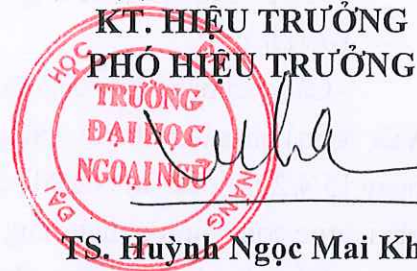 KT. HIỆU TRƯỞNG
PHÓ HIỆU TRƯỞNG
ĐẠI HỌC ĐÀ NẴNG
TRƯỜNG
ĐẠI HỌC
NGOẠI NGỮ
TS. Huỳnh Ngọc Mai Kh